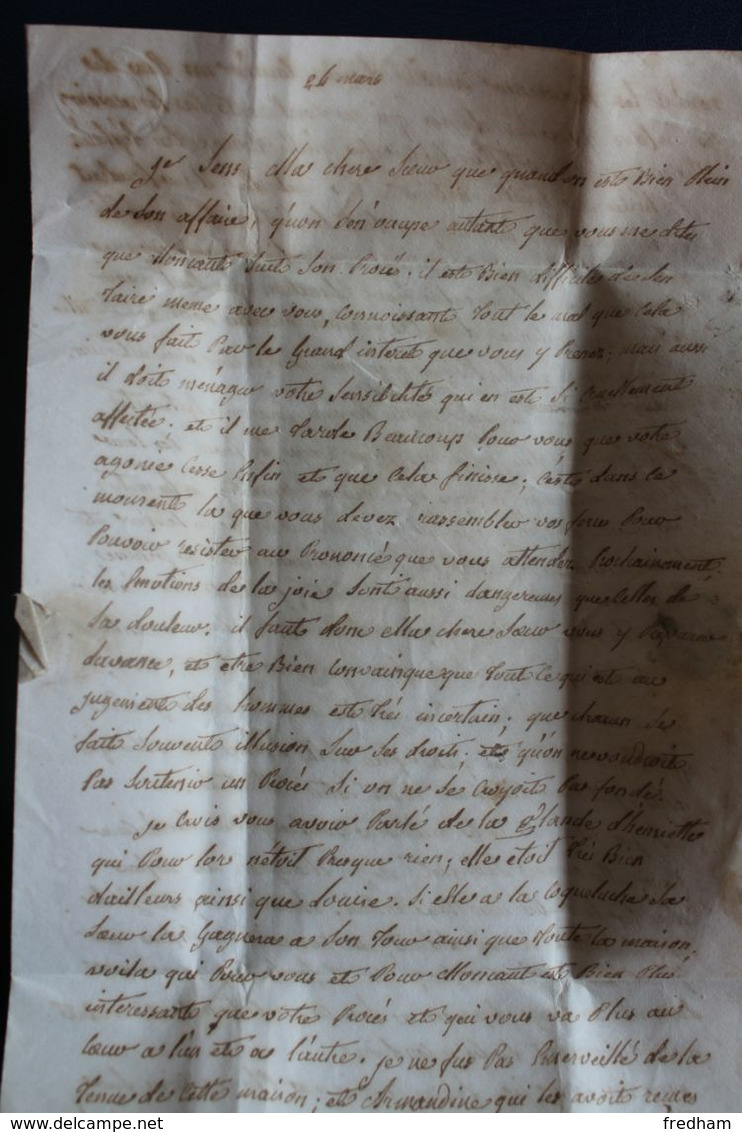 26 mars
je sens Ma chere Sœur que quand on est Bien Plein
de Son affaire, qu'on S'en occupe autant que vous me dites
que Momant Suit Son Procé. il est Bien difficile de S'en
Taire meme avec vous, connoissant Tout le mal que Cela
vous fait Par le Grand interet que vous y Prenez; mais aussi
il doit ménager votre Sensibilité qui en est Si Cruellement
affectée. et il me Tarde Beaucoup Pour vous que votre
agonie Cesse Enfin et que Cela finisse; C'est dans ce
moment la que vous devez rassembler vos forces Pour
Pouvoir resister au Prononcé que vous attendez Prochainement.
les Emotions de la joie Sont aussi dangereuses que Celles de
La douleur. il faut donc Ma chere Sœur vous y
davance, et etre Bien Convainque que Tout Ce qui est au
jugement des hommes est Très incertain; que chacun Se
fait Souvent illusion Sur Ses droits; et qu'on ne voudroit
Pas Soutenir un Procés Si on ne Se Croyoit Pas fondé.
je Crois vous avoir Parlé de la Glande d'henriette
qui Pour lor n'étoit Presque rien; elle étoit Très Bien
dailleurs ainsi que Louise. Si elle a la Coqueluche Sa
Sœur la Gagnera a Son Tour ainsi que Toute la maison.
voila qui Pour vous et Pour Momant est Bien Plus
interessant que votre Procés et qui vous va Plus au
Cœur a l'un et a l'autre. je ne fus Pas Emerveillé de la
Tenue de Cette maison; et Armandine qui les avoit
fredham